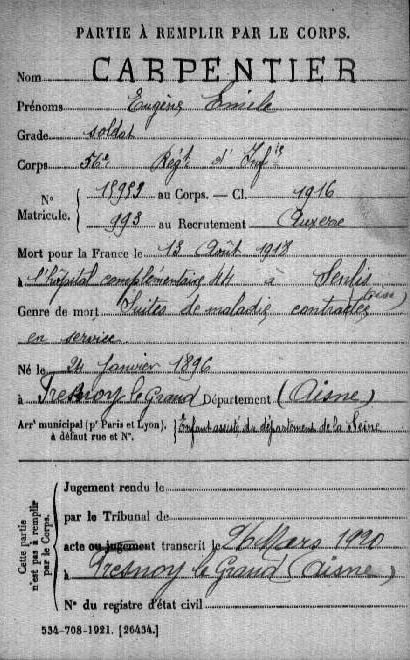 PARTIE À REMPLIR PAR LE CORPS.
Nom CARPENTIER
Prénoms Eugène Emile
Grade soldat
Corps Régt d'Infie
N° Matricule. 18993 au Corps. — Cl. 1916
993 au Recrutement Auxerre
Mort pour la France le 13 Août 1918
à l'hôpital complémentaire à Senlis (Oise)
Genre de mort Suites de maladie contractée
en service
Né le 24 Janvier 1896
à Fresnoy le Grand Département (Aisne)
Arrt municipal (pr Paris et Lyon), à défaut rue et N°. Enfant assisté du département de la Seine
Cette partie n'est pas à remplir par le Corps.
Jugement rendu le
par le Tribunal de
acte ou jugement transcrit le 26 Mars 1920
à Fresnoy le Grand (Aisne)
N° du registre d'état civil
534-708-1921. [26434.]